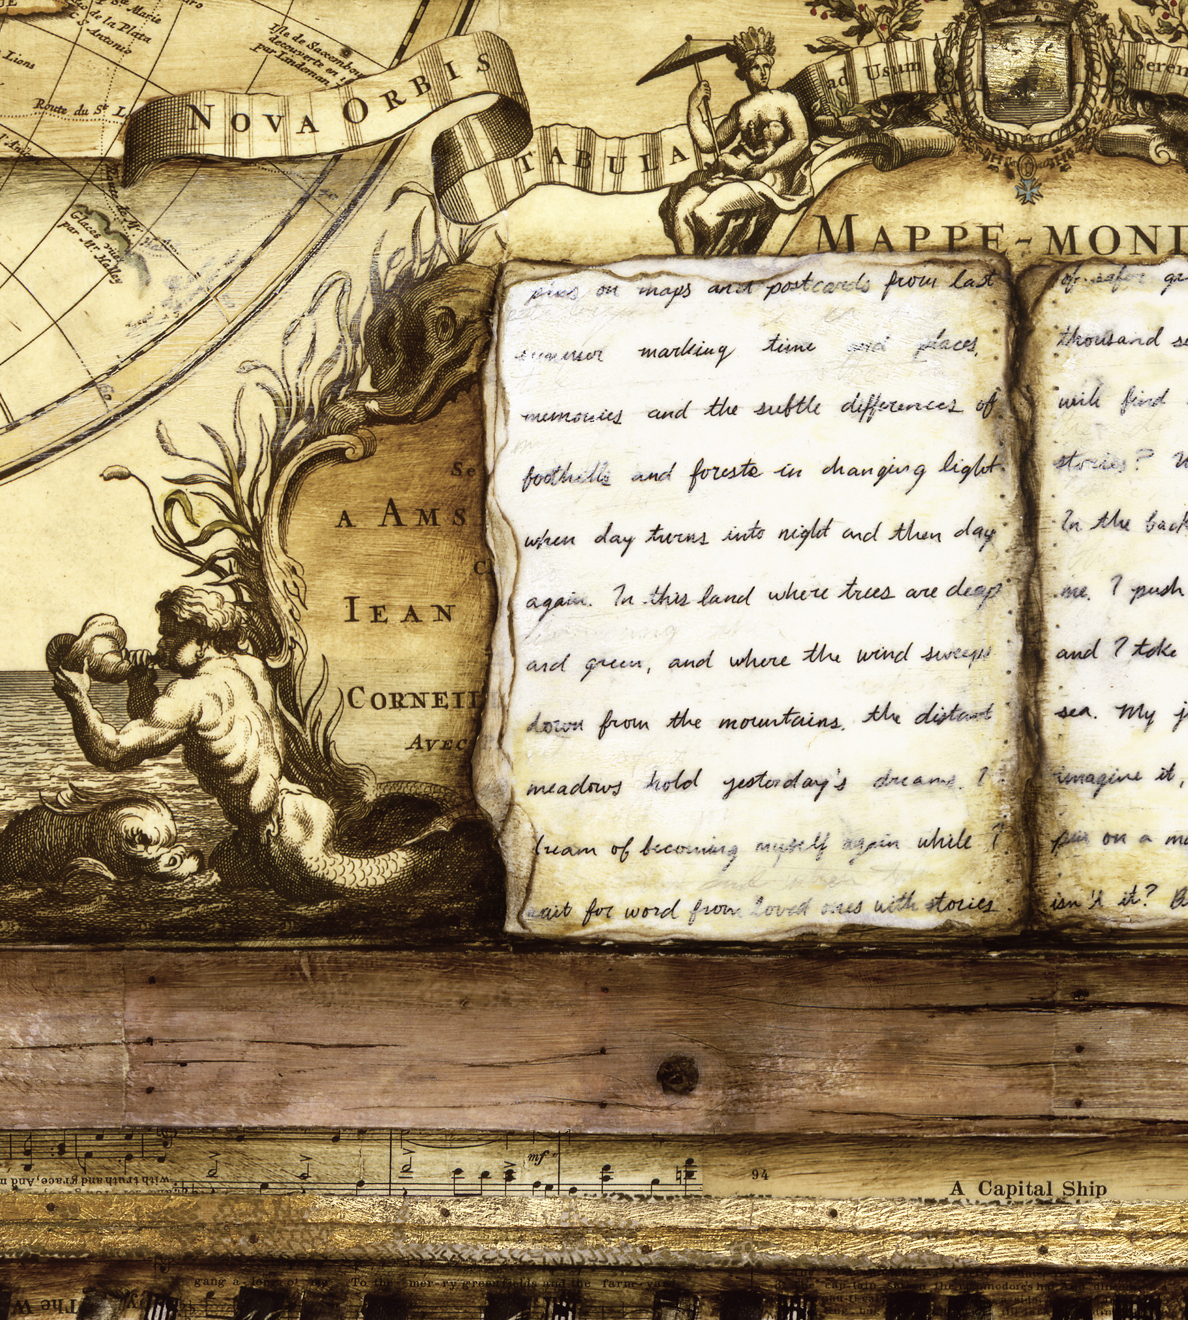 Ste Marie
de la Plata
S. Antonio
Lions
Route du St. L
Isle de
decouverte en
par Lindeman
NOVA ORBIS
TABULA
ad Usum
Seren
MAPPE-MOND
Glaces vues
par Mr. Halley
Se
A AMS
IEAN
CORNEIL
AVEC
pins on maps and postcards from last
summer marking time and places,
memories and the subtle differences of
foothills and forests in changing light
when day turns into night and then day
again. In this land where trees are deep
and green, and where the wind sweeps
down from the mountains. the distant
meadows hold yesterday's dreams. I
dream of becoming myself again while I
wait for word from loved ones with stories
of safer
thousand
will find
stories?
In the back
me. I push
and I take
sea. My
imagine it,
pin on a
isn't it?
mf
with truth and grace, And
94
A Capital Ship
To the mer-ry greenfields and the
The W